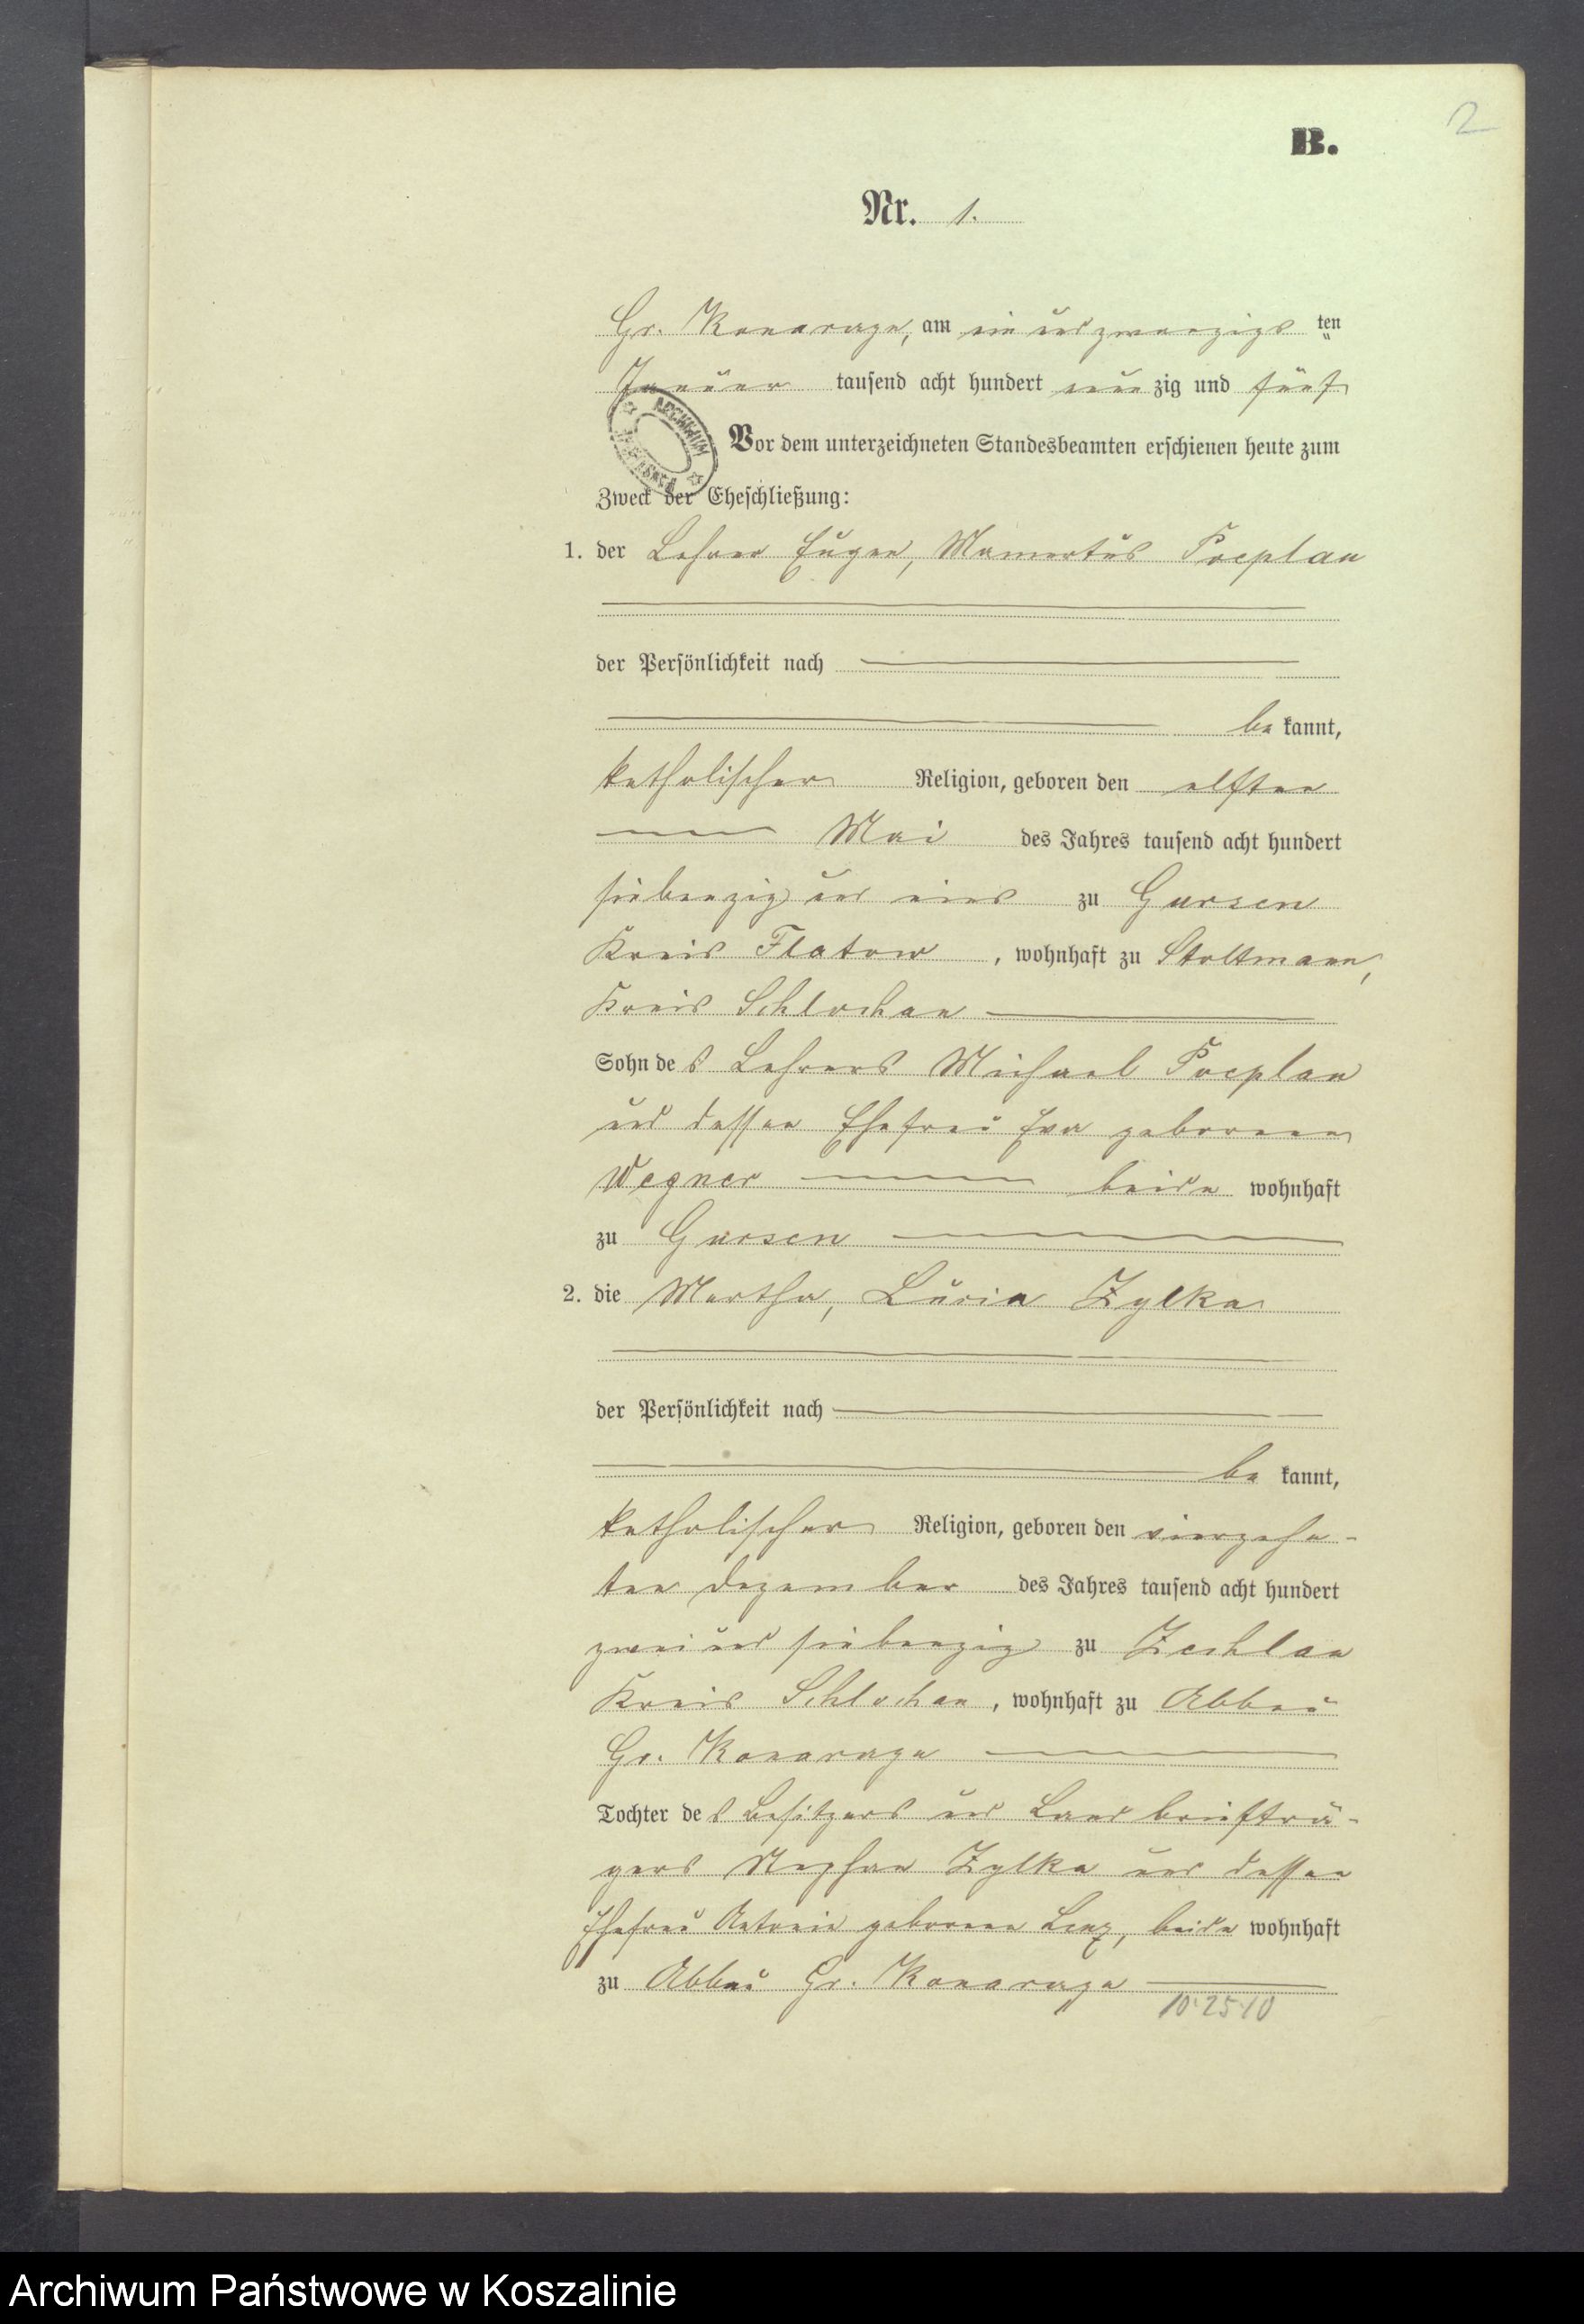 2
B.
Nr. 1.
Gr. Konarczyn, am ein und zwanzigs ten
Januar tausend acht hundert neun zig und fünf
ARCHIWUM
Vor dem unterzeichneten Standesbeamten erschienen heute zum
Zweck der Eheschließung:
1. der Lehrer Eugen, Mamertus
der Persönlichkeit nach
be kannt,
katholischer Religion, geboren den elften
Mai des Jahres tausend acht hundert
siebenzig und eins zu Gursen
Kreis Flatow, wohnhaft zu Stoltmann,
Kreis Schlochau
Sohn des Lehrers Michael
und dessen Ehefrau Eva geborenen
Wegner beide wohnhaft
zu Gursen
2. die Martha, Lucia Zylka
der Persönlichkeit nach
be kannt,
katholischer Religion, geboren den vierzehn-
ten Dezember des Jahres tausend acht hundert
zwei und siebenzig zu Zechlau
Kreis Schlochau, wohnhaft zu Abbau
Gr. Konarczyn
Tochter des Besitzers und Landbriefträ-
gers Stephan Zylka und dessen
Ehefrau Antonie geborenen Lenz, beide wohnhaft
zu Abbau Gr. Konarczyn
10.25.10
Archiwum Państwowe w Koszalinie